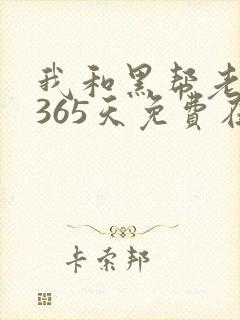 我和黑帮老
365天免費在
卡索邦